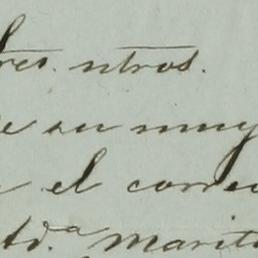 res. ntros.
e su muy
el correo
td.ª marit